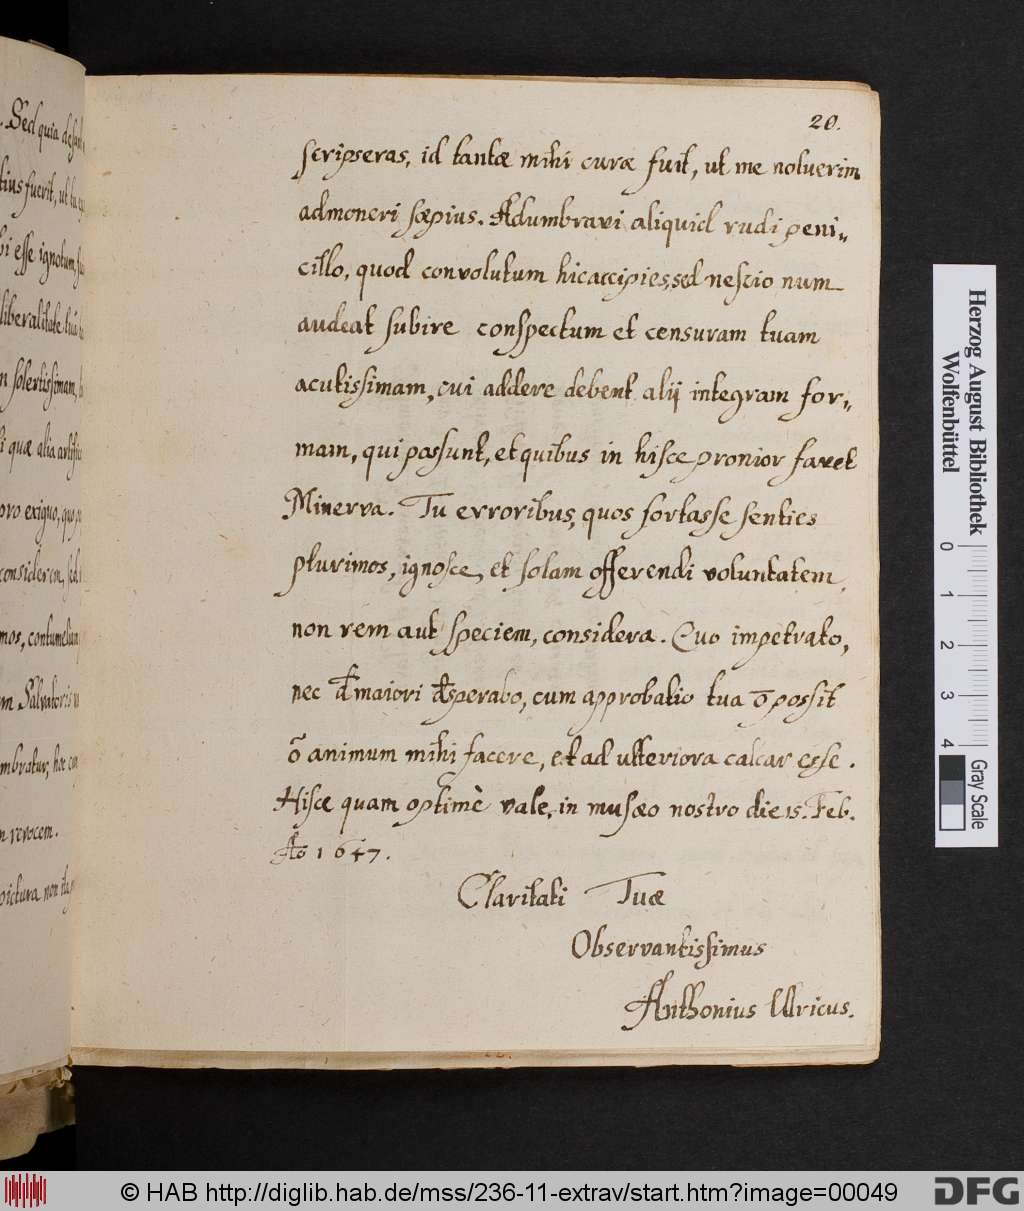 . Sed quia
tius fuerit, ut tu
bi esse ignotum,
liberalitate tuâ
n solertissimam,
i quæ alia
oro exiguo, quo
considerem, sed
mos, contumeliam
m Salvatoris
mbratur, hoc
n revocem.
pictura non
20.
scripseras, id tantæ mihi curæ fuit, ut me noluerim
admoneri sæpius. Adumbravi aliquid rudi peni„
cillo, quod convolutum hic accipies, sed nescio num
audeat subire conspectum et censuram tuam
acutissimam, cui addere debent alij integram for„
mam, qui possunt, et quibus in hisce pronior favet
Minerva. Tu erroribus, quos fortasse senties
plurimos, ignosce, et solam offerendi voluntatem,
non rem aut speciem, considera. Quo impetrato,
nec maiori desperabo, cum approbatio tua possit
animum mihi facere, et ad ulteriora calcar esse.
Hisce quam optimè vale, in musæo nostro die 15. Feb.
Ao 1647.
Claritati Tuæ
Observantissimus
Anthonius Ulricus.
Herzog August Bibliothek
Wolfenbüttel
0 1 2 3 4
Gray Scale
© HAB http://diglib.hab.de/mss/236-11-extrav/start.htm?image=00049
DFG